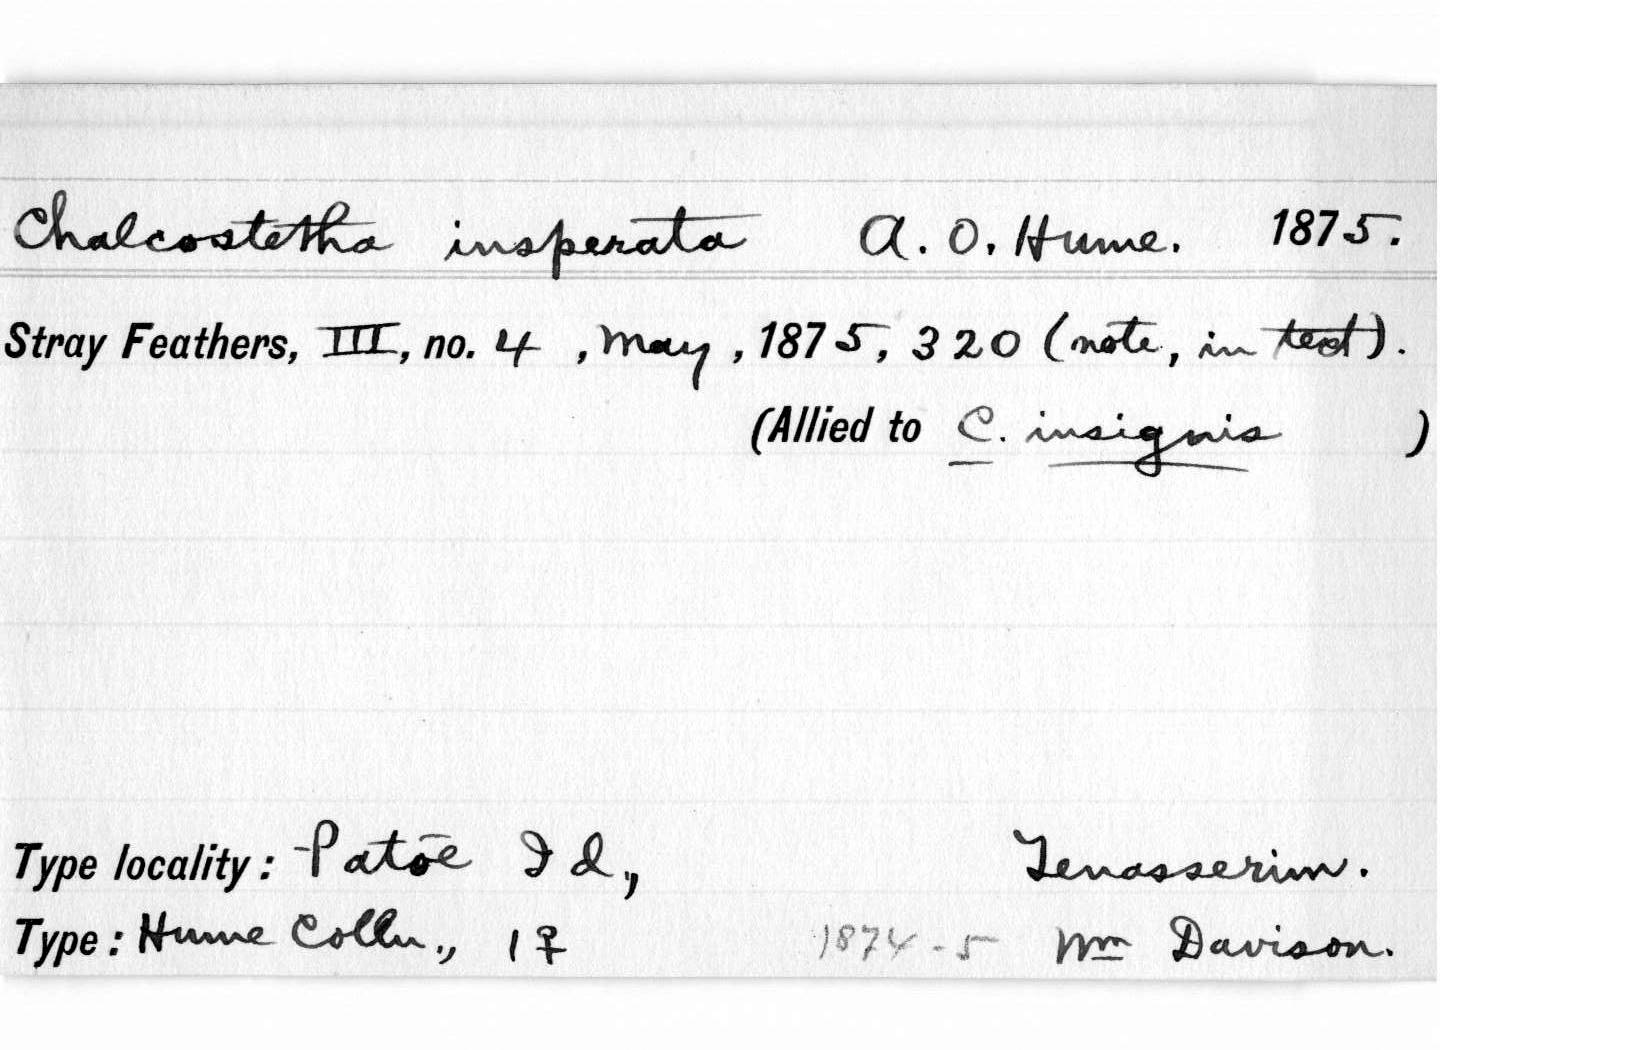 Chalcostetha insperata A. O. Hume. 1875.
Stray Feathers, III, no. 4, May, 1875, 320 (note, in text).
(Allied to C. insignis )
Type locality: Patoe Id., Tenasserim.
Type: Hume Colln., 1 ♀ 1874-5 Wm Davison.